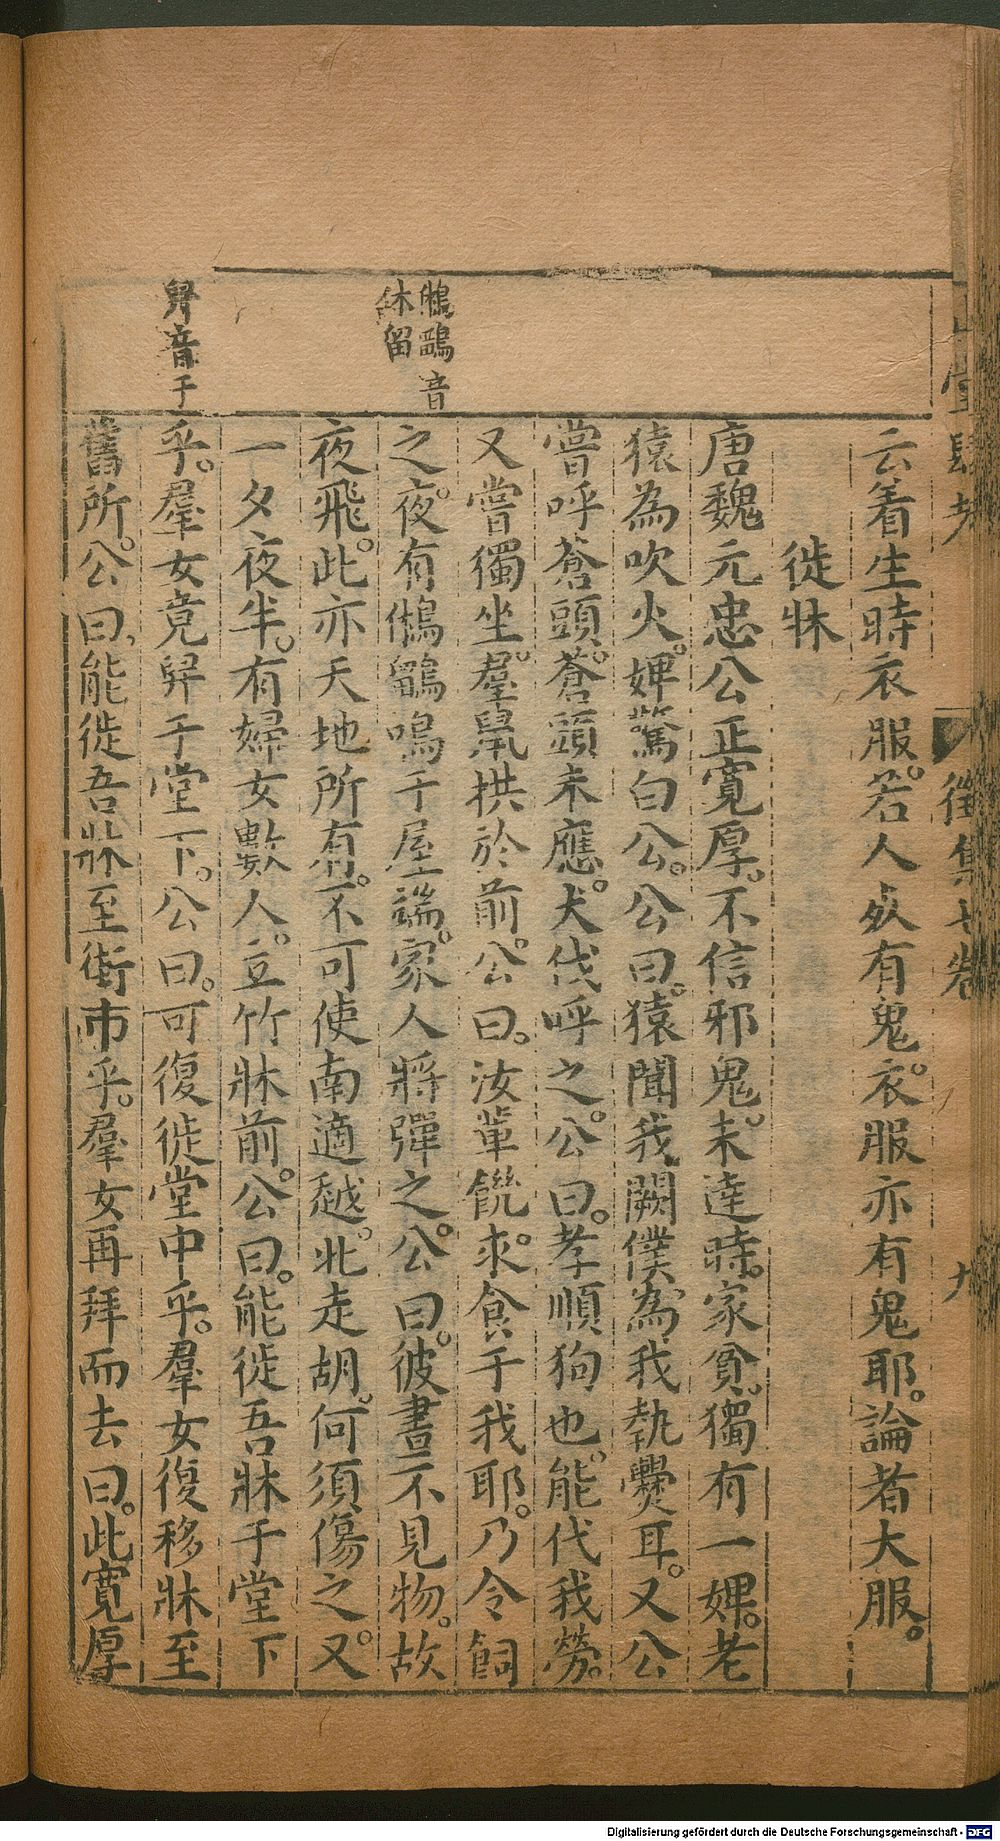 山堂肆考 徵集七卷 九
云着生時衣服。若人死有鬼。衣服亦有鬼耶。論者大服。
徙牀
唐魏元忠公正寬厚。不信邪鬼。未達時。家貧。獨有一婢。老
猿為吹火。婢驚白公。公曰。猿聞我闕僕。為我執爨耳。又公
嘗呼蒼頭。蒼頭未應。犬代呼之。公曰。孝順狗也。能代我勞。
又嘗獨坐。羣鼠拱於前。公曰。汝輩饑。求食于我耶。乃令飼
之。夜有鵂鶹鳴于屋端。家人將彈之。公曰。彼晝不見物。故
夜飛。此亦天地所有。不可使南適越。北走胡。何須傷之。又
一夕夜半。有婦女數人。立竹牀前。公曰。能徙吾牀于堂下
乎。羣女竟舁于堂下。公曰。可復徙堂中乎。羣女復移牀至
舊所。公曰。能徙吾牀至街市乎。羣女再拜而去曰。此寬厚
鵂鶹音
休留
舁音于
Digitalisierung gefördert durch die Deutsche Forschungsgemeinschaft - DFG